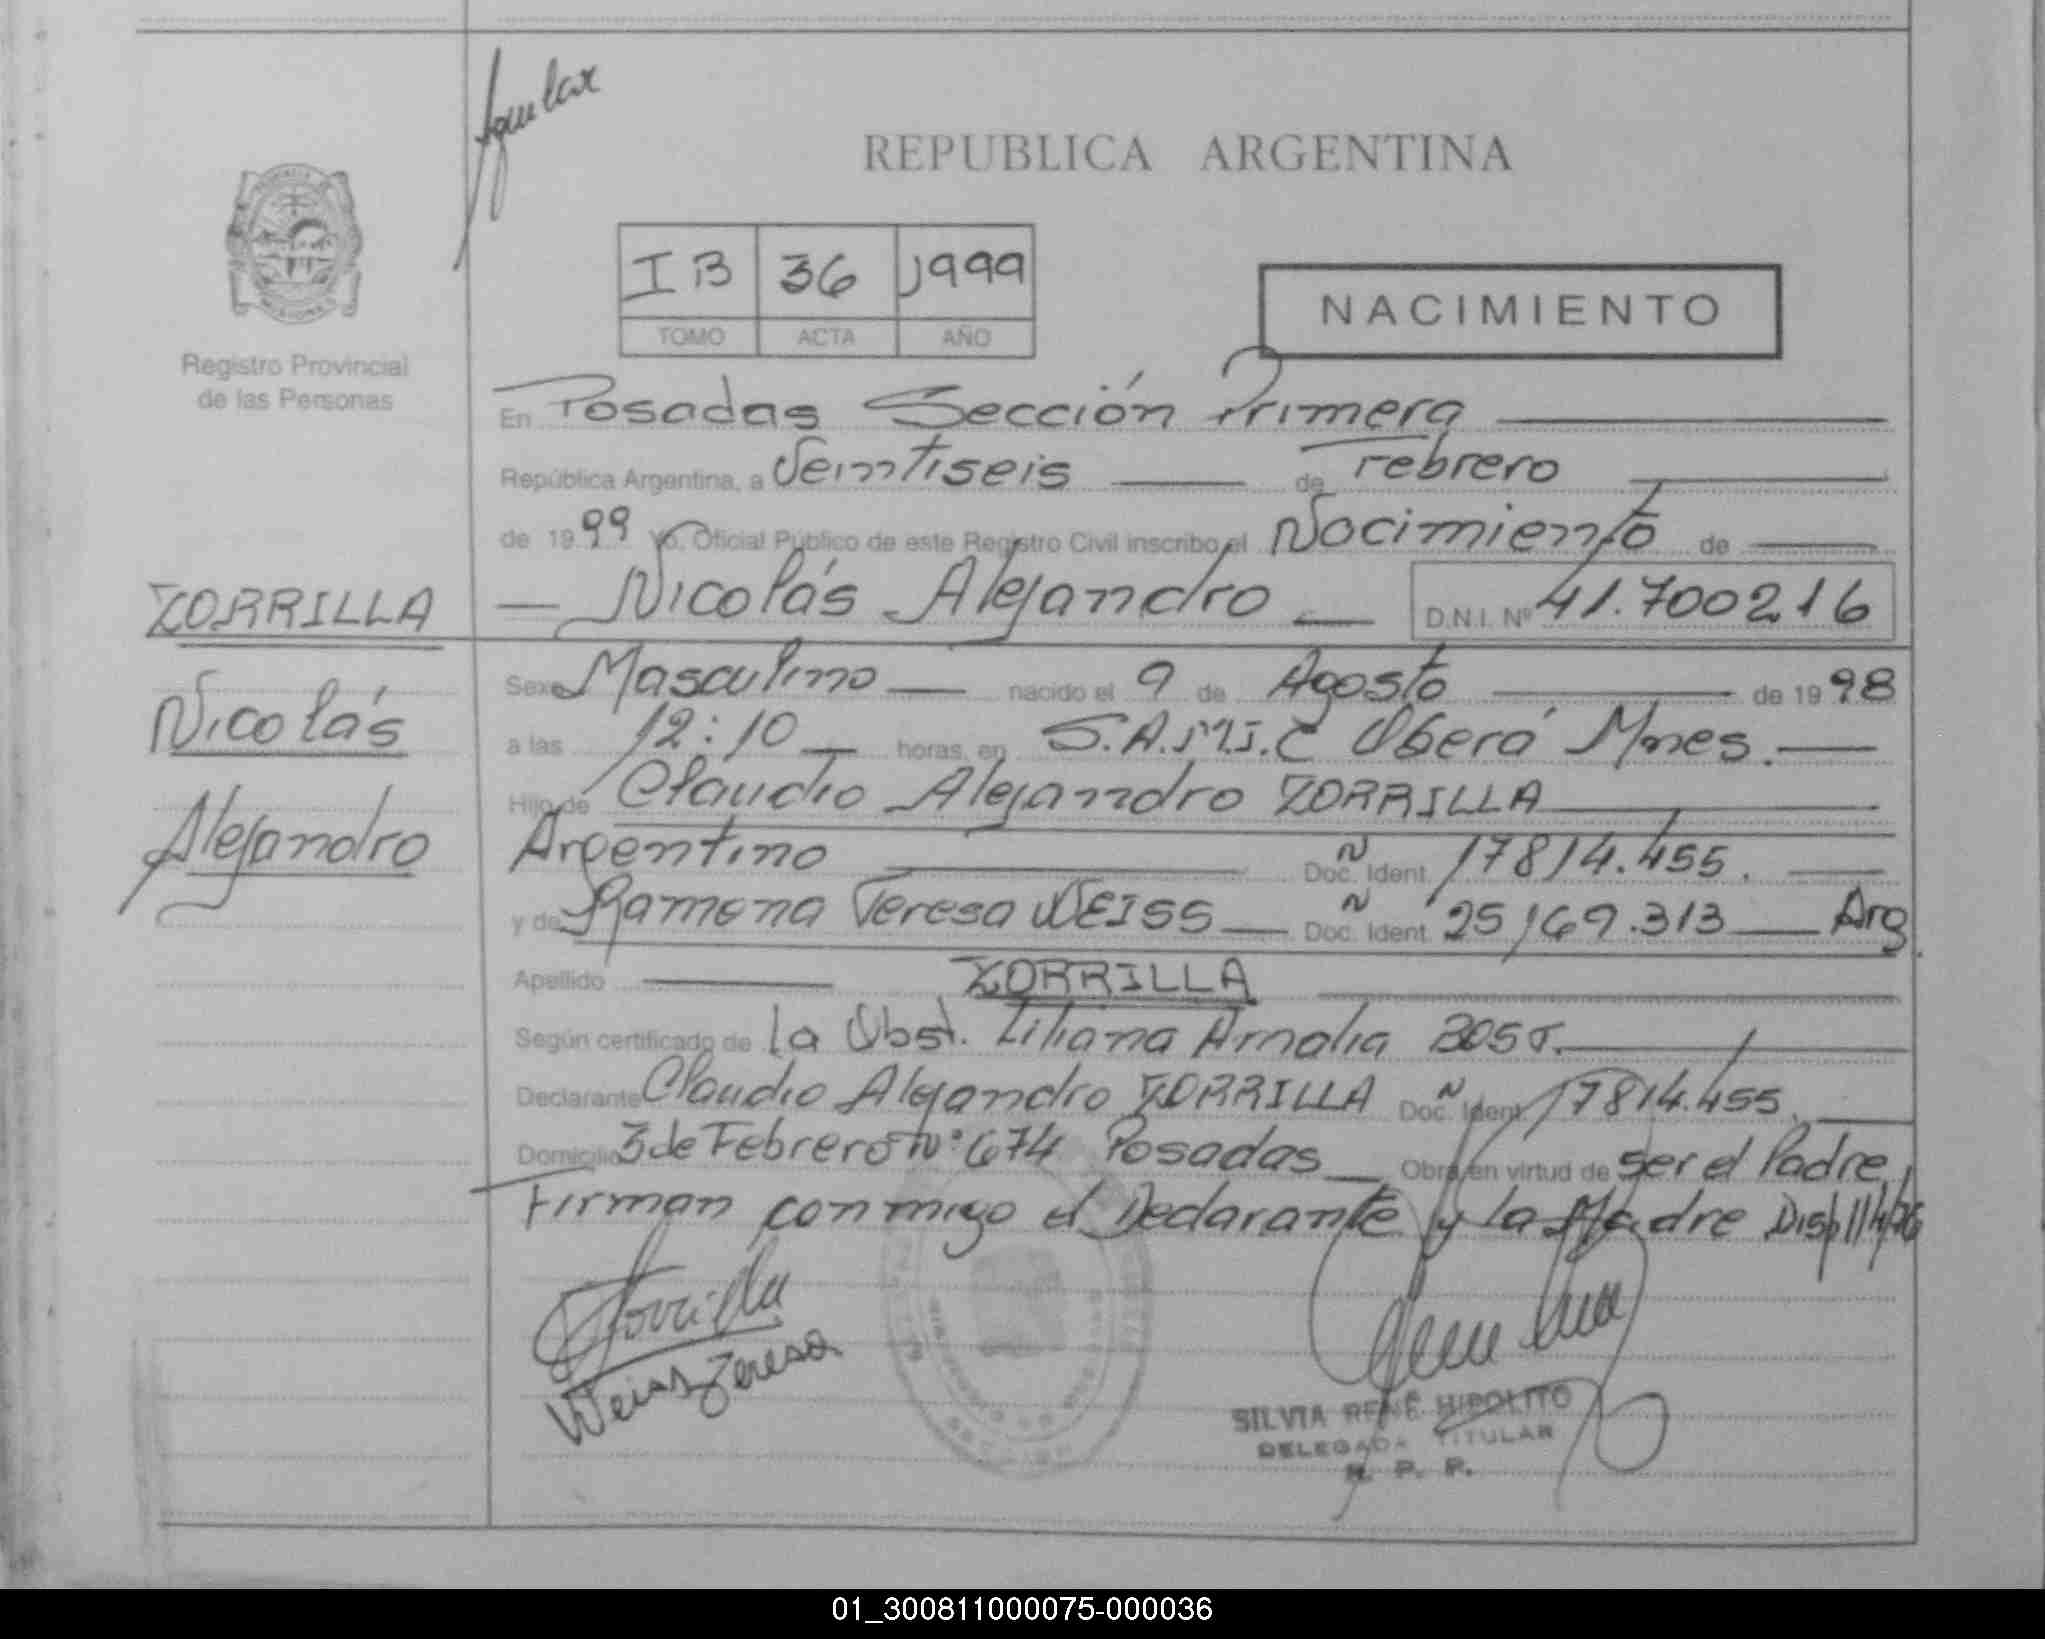 Aguilar
REPUBLICA ARGENTINA
IB 36 1999
TOMO ACTA AÑO
NACIMIENTO
Registro Provincial
de las Personas
En Posadas Sección Primera
República Argentina, a Veintiseis de Febrero
de 1999 Yo, Oficial Público de este Registro Civil inscribo el Nacimiento de
Nicolás Alejandro D.N.I. Nº 41.700216
ZORRILLA
Nicolás
Alejandro
Sexo Masculino nacido el 9 de Agosto de 1998
a las 12:10 horas, en S.A.M.I.C Oberá Mnes.
Hijo de Claudio Alejandro ZORRILLA
Argentino Doc. Ident. 17814.455.
y de Ramona Teresa WEISS Doc. Ident. 25169.313 Arg.
Apellido ZORRILLA
Según certificado de la Obst. Liliana Amalia
Declarante Claudio Alejandro ZORRILLA Doc. Ident. 17814.455.
Domicilio 3 de Febrero Nº 674 Posadas Obra en virtud de ser el Padre,
Firman conmigo el Declarante y la Madre Disp 114/76
Zorrilla
Weiss Teresa
SILVIA RENÉ HIPOLITO
DELEGADA TITULAR
R. P. P.
01_300811000075-000036